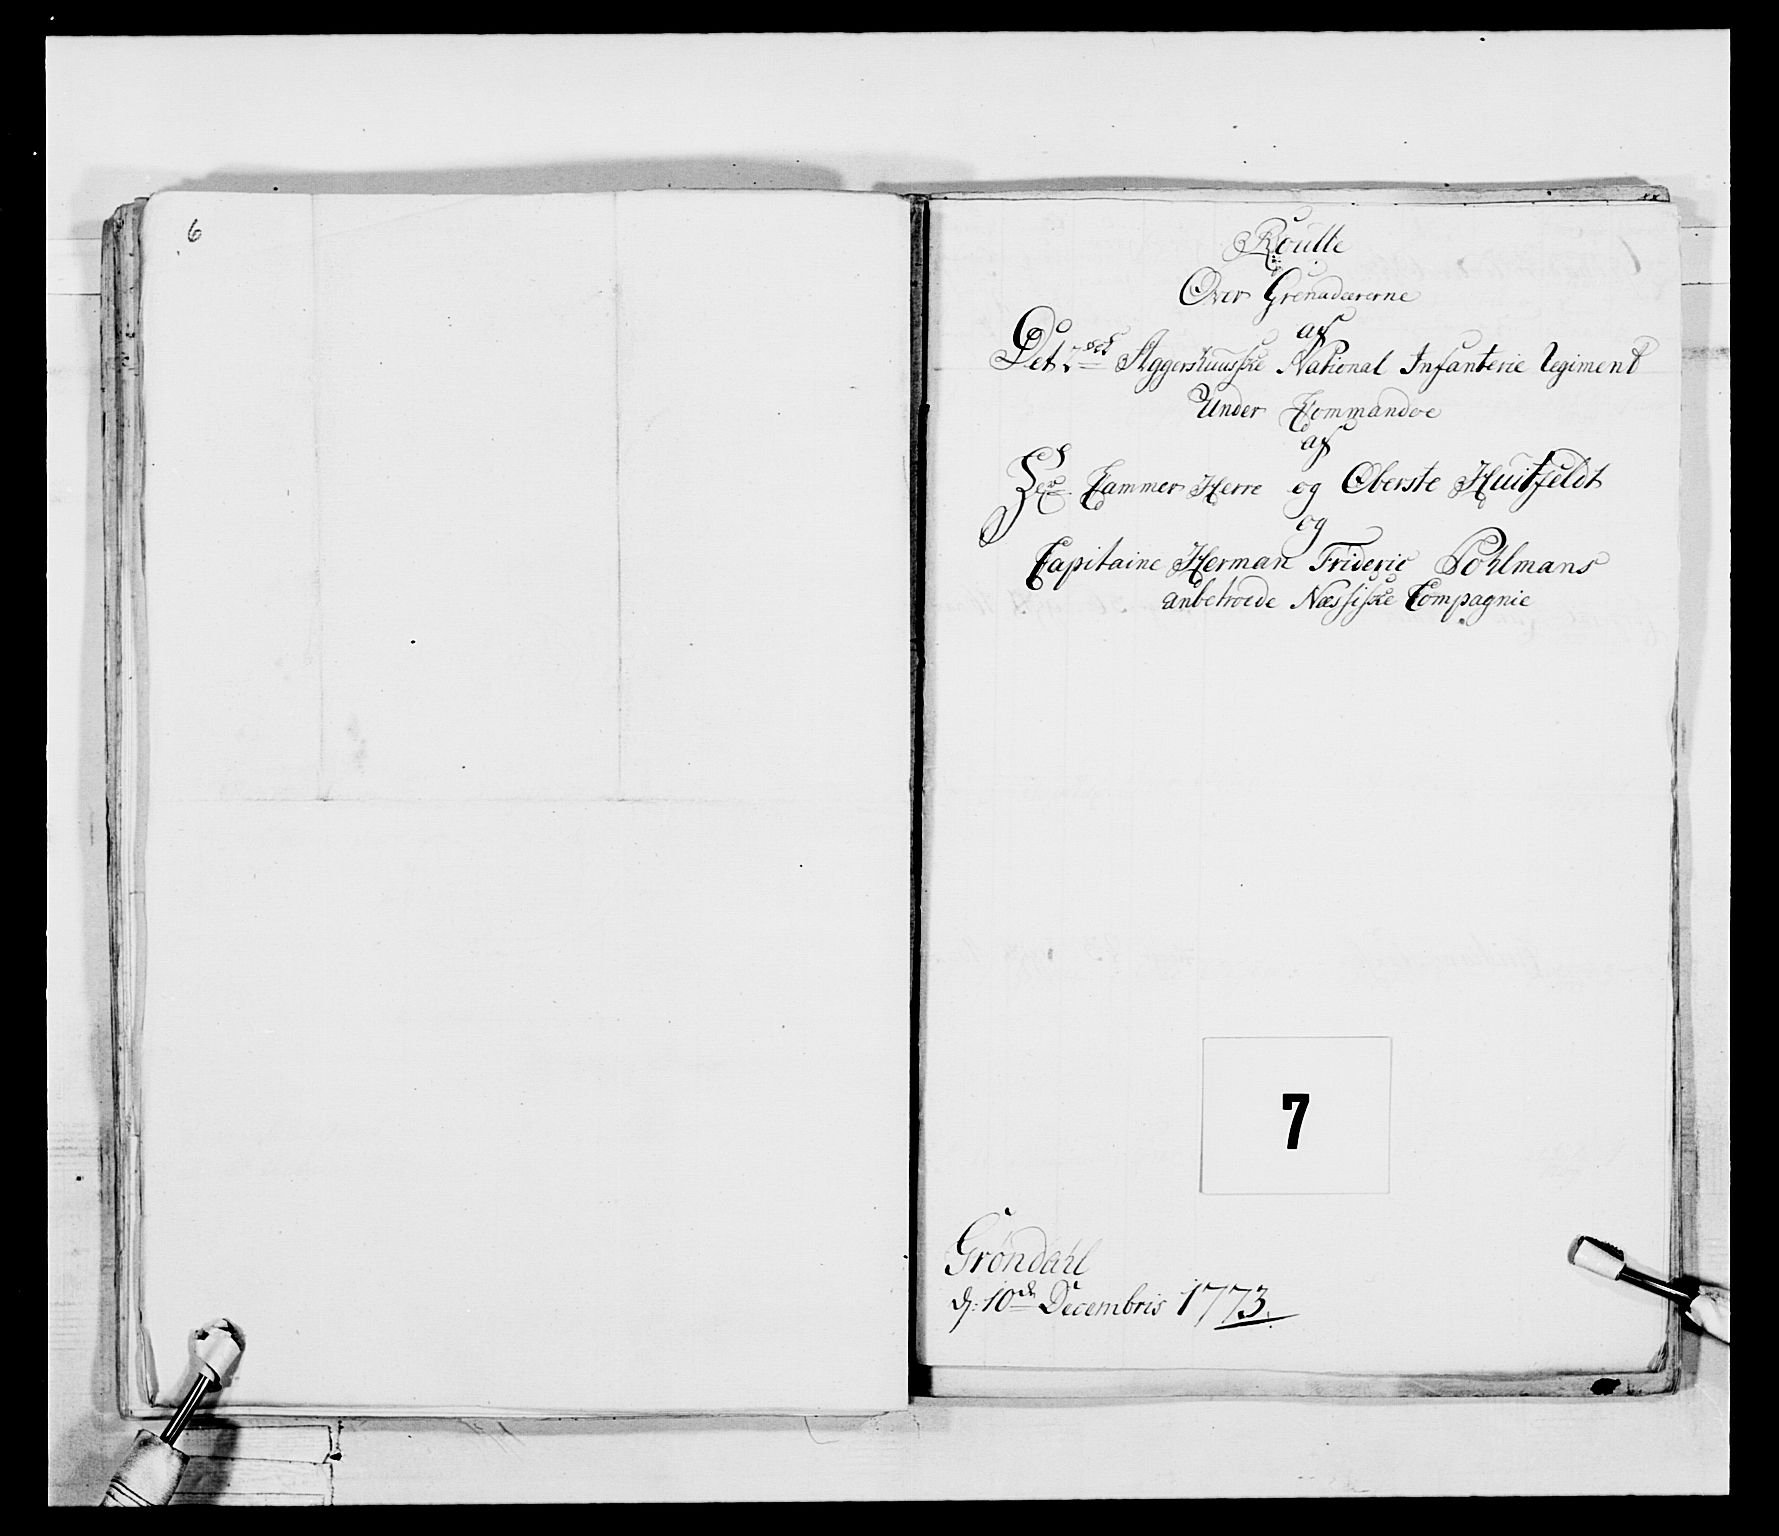 6
Roulle
Over Grenadererne
af
Det 2det Aggershuusske National Infanterie Regiment
Under Commandoe
af
Hr. Cammer Herre og Oberste Huitfeldt
og
Capitaine Herman Frideric Pohlmans
anbetroede Næssiske Compagnie
7
Grøndahl
d: 10de Decembris 1773.